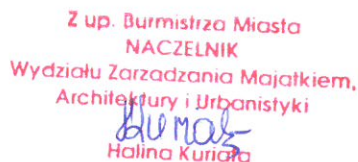 Z up. Burmistrza Miasta
NACZELNIK
Wydziału Zarzadzania Majatkiem,
Architektury i Urbanistyki
Halina Kuriata